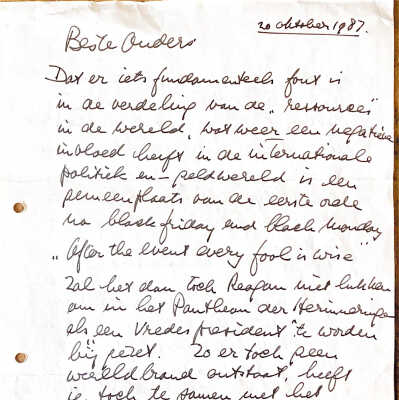 20 oktober 1987.
Beste Ouders
Dat er iets fundamenteels fout is
in de verdeling van de „ressources"
in de wereld, wat weer een negatieve
invloed heeft in de internationale
politiek en - geldwereld is een
gemeenplaats van de eerste orde
na black friday and black monday
„After the event every fool is wise"
Zal het dan toch Reagan niet lukken
om in het Pantheon der Herinneringen
als een Vredespresident te worden
bijgezet. Zo er toch geen
wereldbrand ontstaat, heeft
ie toch te samen met het